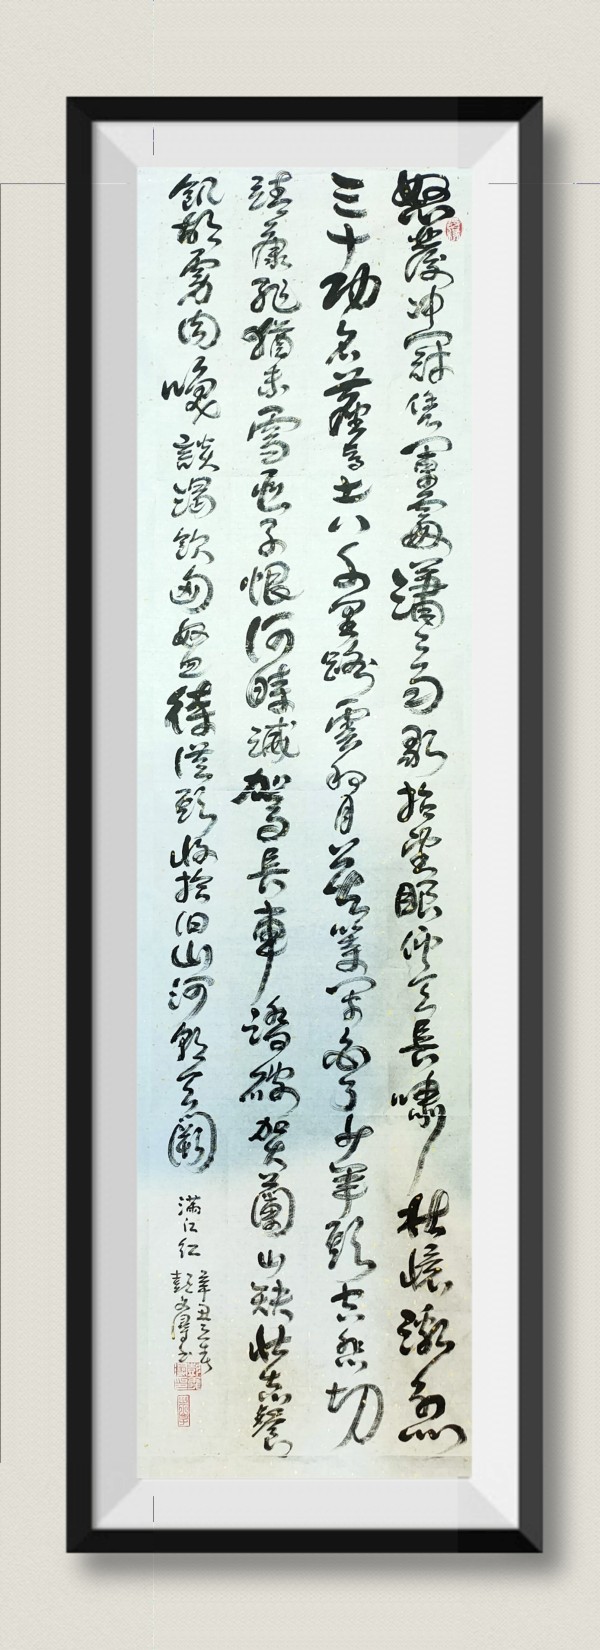 怒髮冲冠凭闌處瀟〻雨歇抬望眼仰天長嘯壯懷激烈
三十功名塵與土八千里路雲和月莫等閑白了少年頭空悲切
靖康恥猶未雪臣子恨何時滅駕長車踏破賀蘭山缺壯志餐
飢胡虜肉笑談渴飲匈奴血待從頭收拾旧山河朝天闕
满江红
辛丑之春